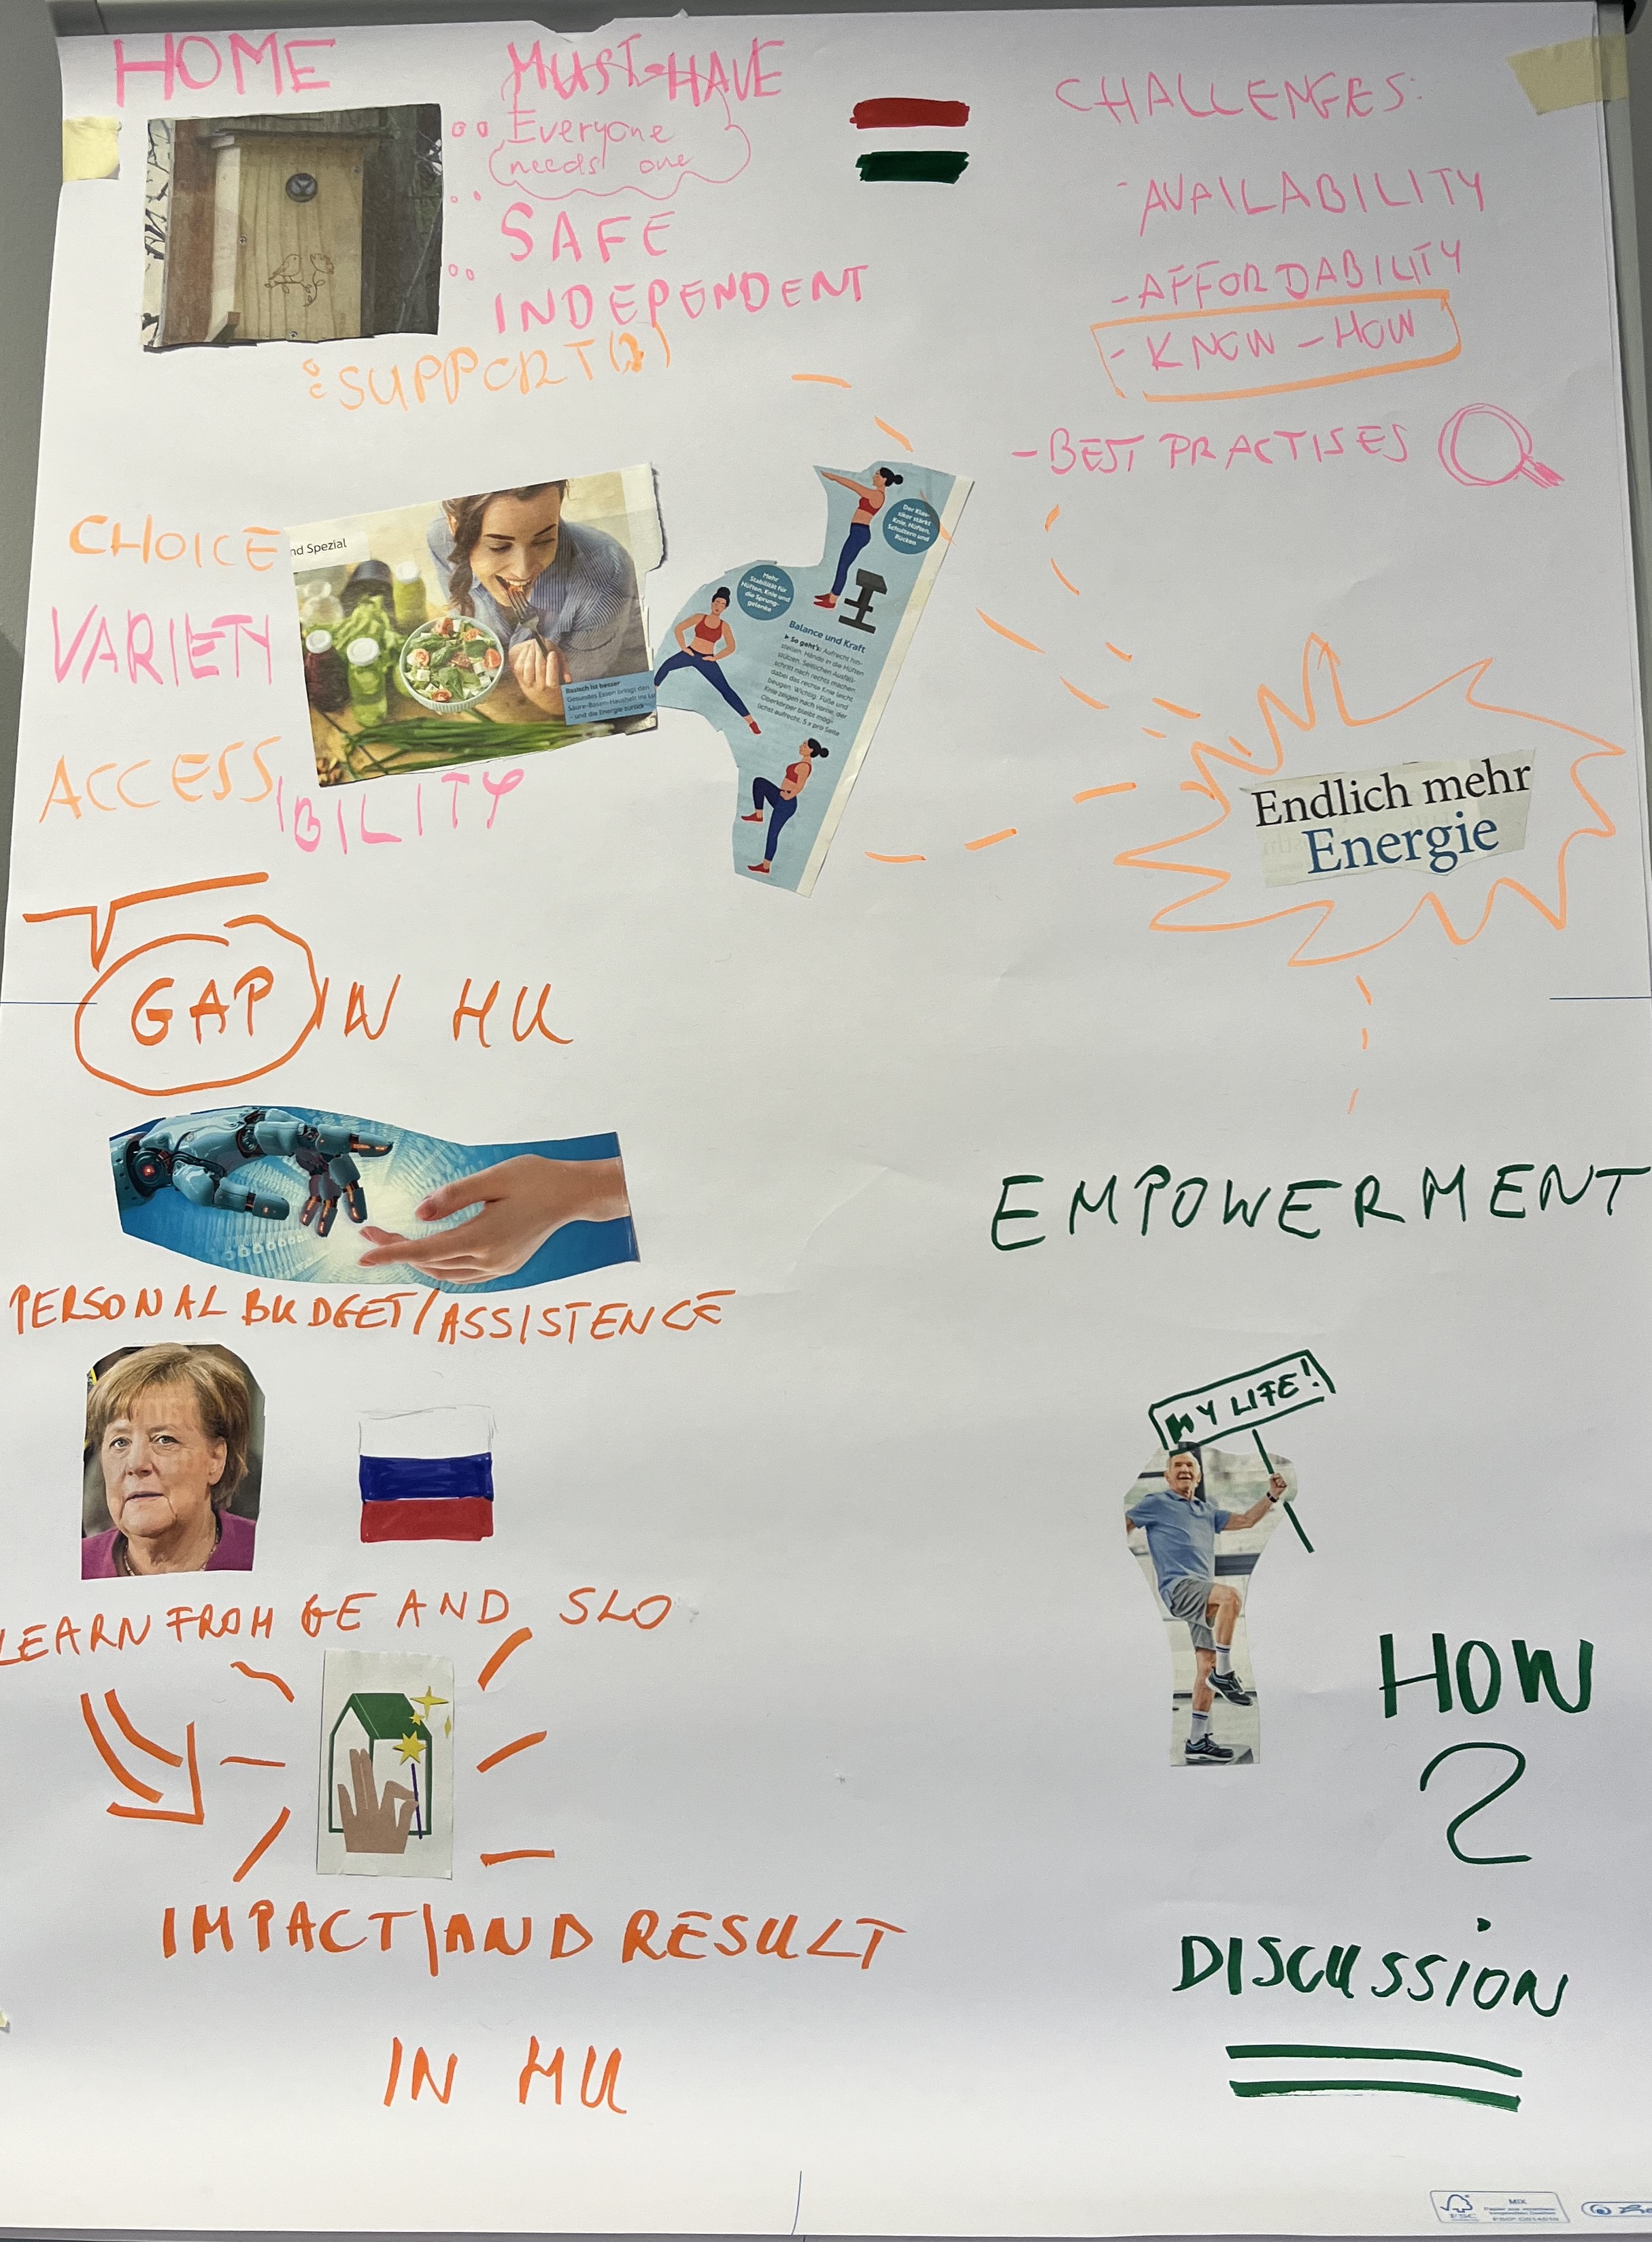 HOME
MUST-HAVE
Everyone
needs one
SAFE
INDEPENDENT
SUPPORT(?)
CHALLENGES:
-AVAILABILITY
-AFFORDABILITY
-KNOW-HOW
-BEST PRACTISES
CHOICE
VARIETY
ACCESSIBILITY
nd Spezial
Basisch ist besser
Gesundes Essen bringt den
Säure-Basen-Haushalt ins Lo
- und die Energie zurück
Der Klas-
siker stärkt
Knie, Hüften,
Schultern und
Rücken
Mehr
Stabilität für
Hüften, Knie und
die Sprung-
gelenke
Balance und Kraft
▶ So geht's: Aufrecht hin-
stellen, Hände in die Hüften
stützen. Seitlichen Ausfall-
schritt nach rechts machen
dabei das rechte Knie leicht
beugen. Wichtig: Füße und
Knie zeigen nach vorne, der
Oberkörper bleibt mög-
lichst aufrecht. 5 x pro Seite
Endlich mehr
Energie
GAP IN HU
PERSONAL BUDGET/ASSISTENCE
LEARN FROM GE AND SLO
IMPACT/AND RESULT
IN HU
EMPOWERMENT
MY LIFE!
HOW
?
DISCUSSION
FSC
MIX